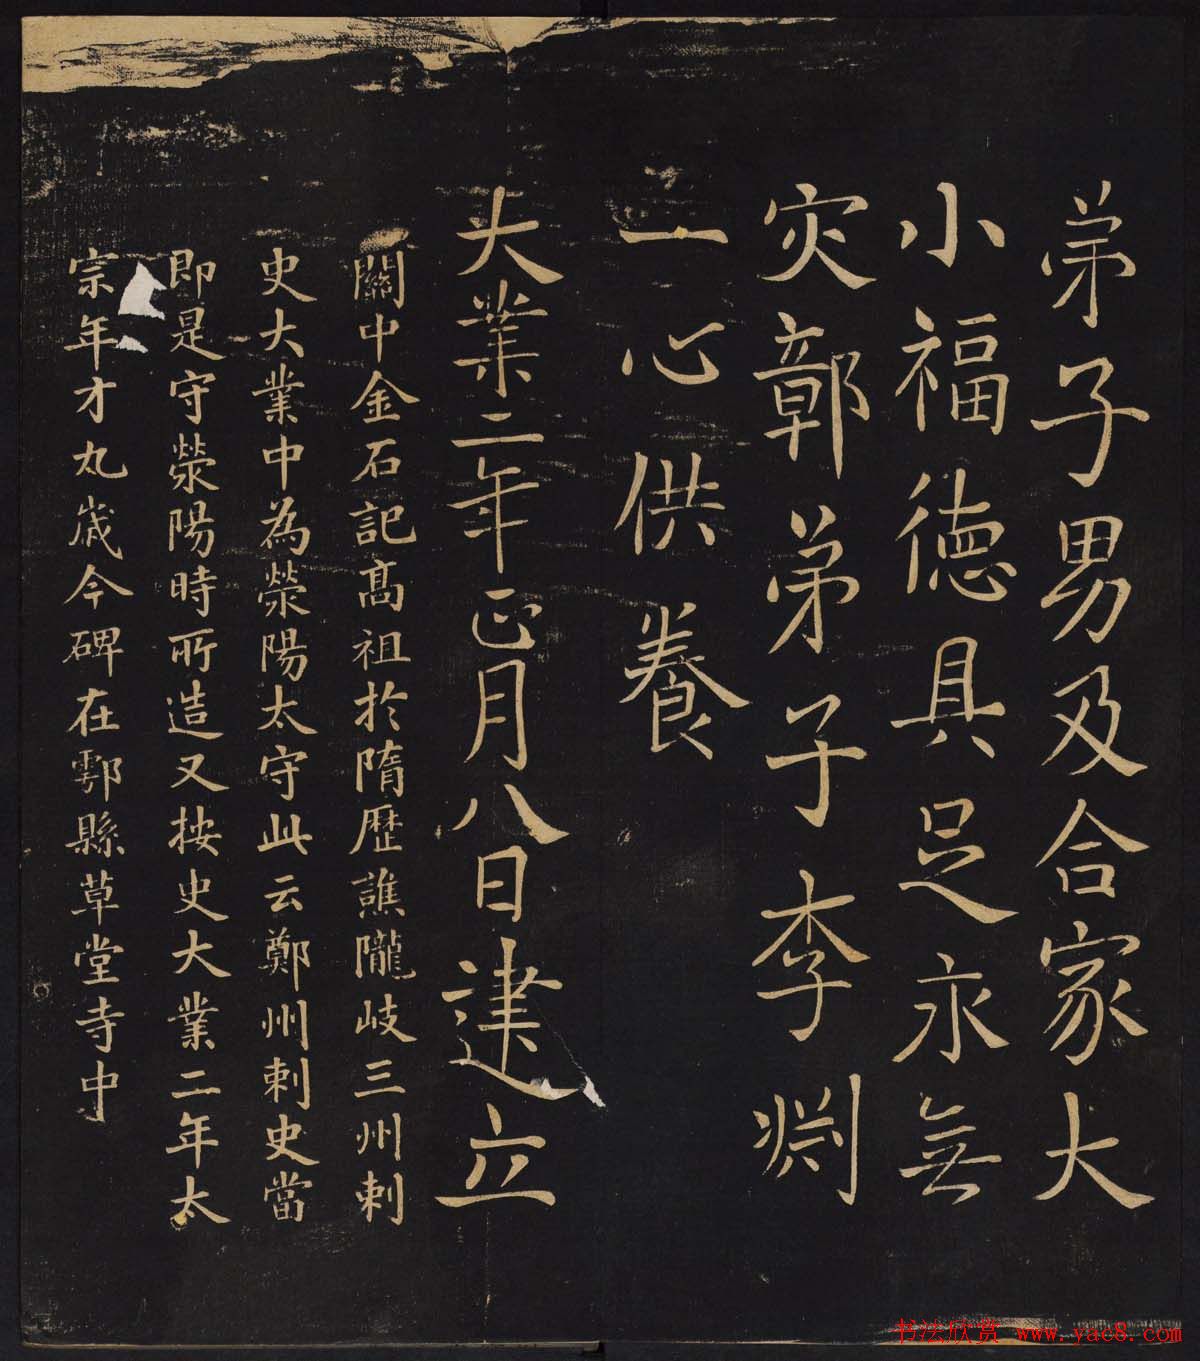 弟子男及合家大
小福德具足永無
灾鄣弟子李渕
一心供養
大業二年正月八日建立
關中金石記高祖於隋歷譙隴岐三州刺
史大業中為滎陽太守此云鄭州刺史當
即是守滎陽時所造又按史大業二年太
宗年才九歲今碑在鄠縣草堂寺中
书法欣赏 www.yac8.com